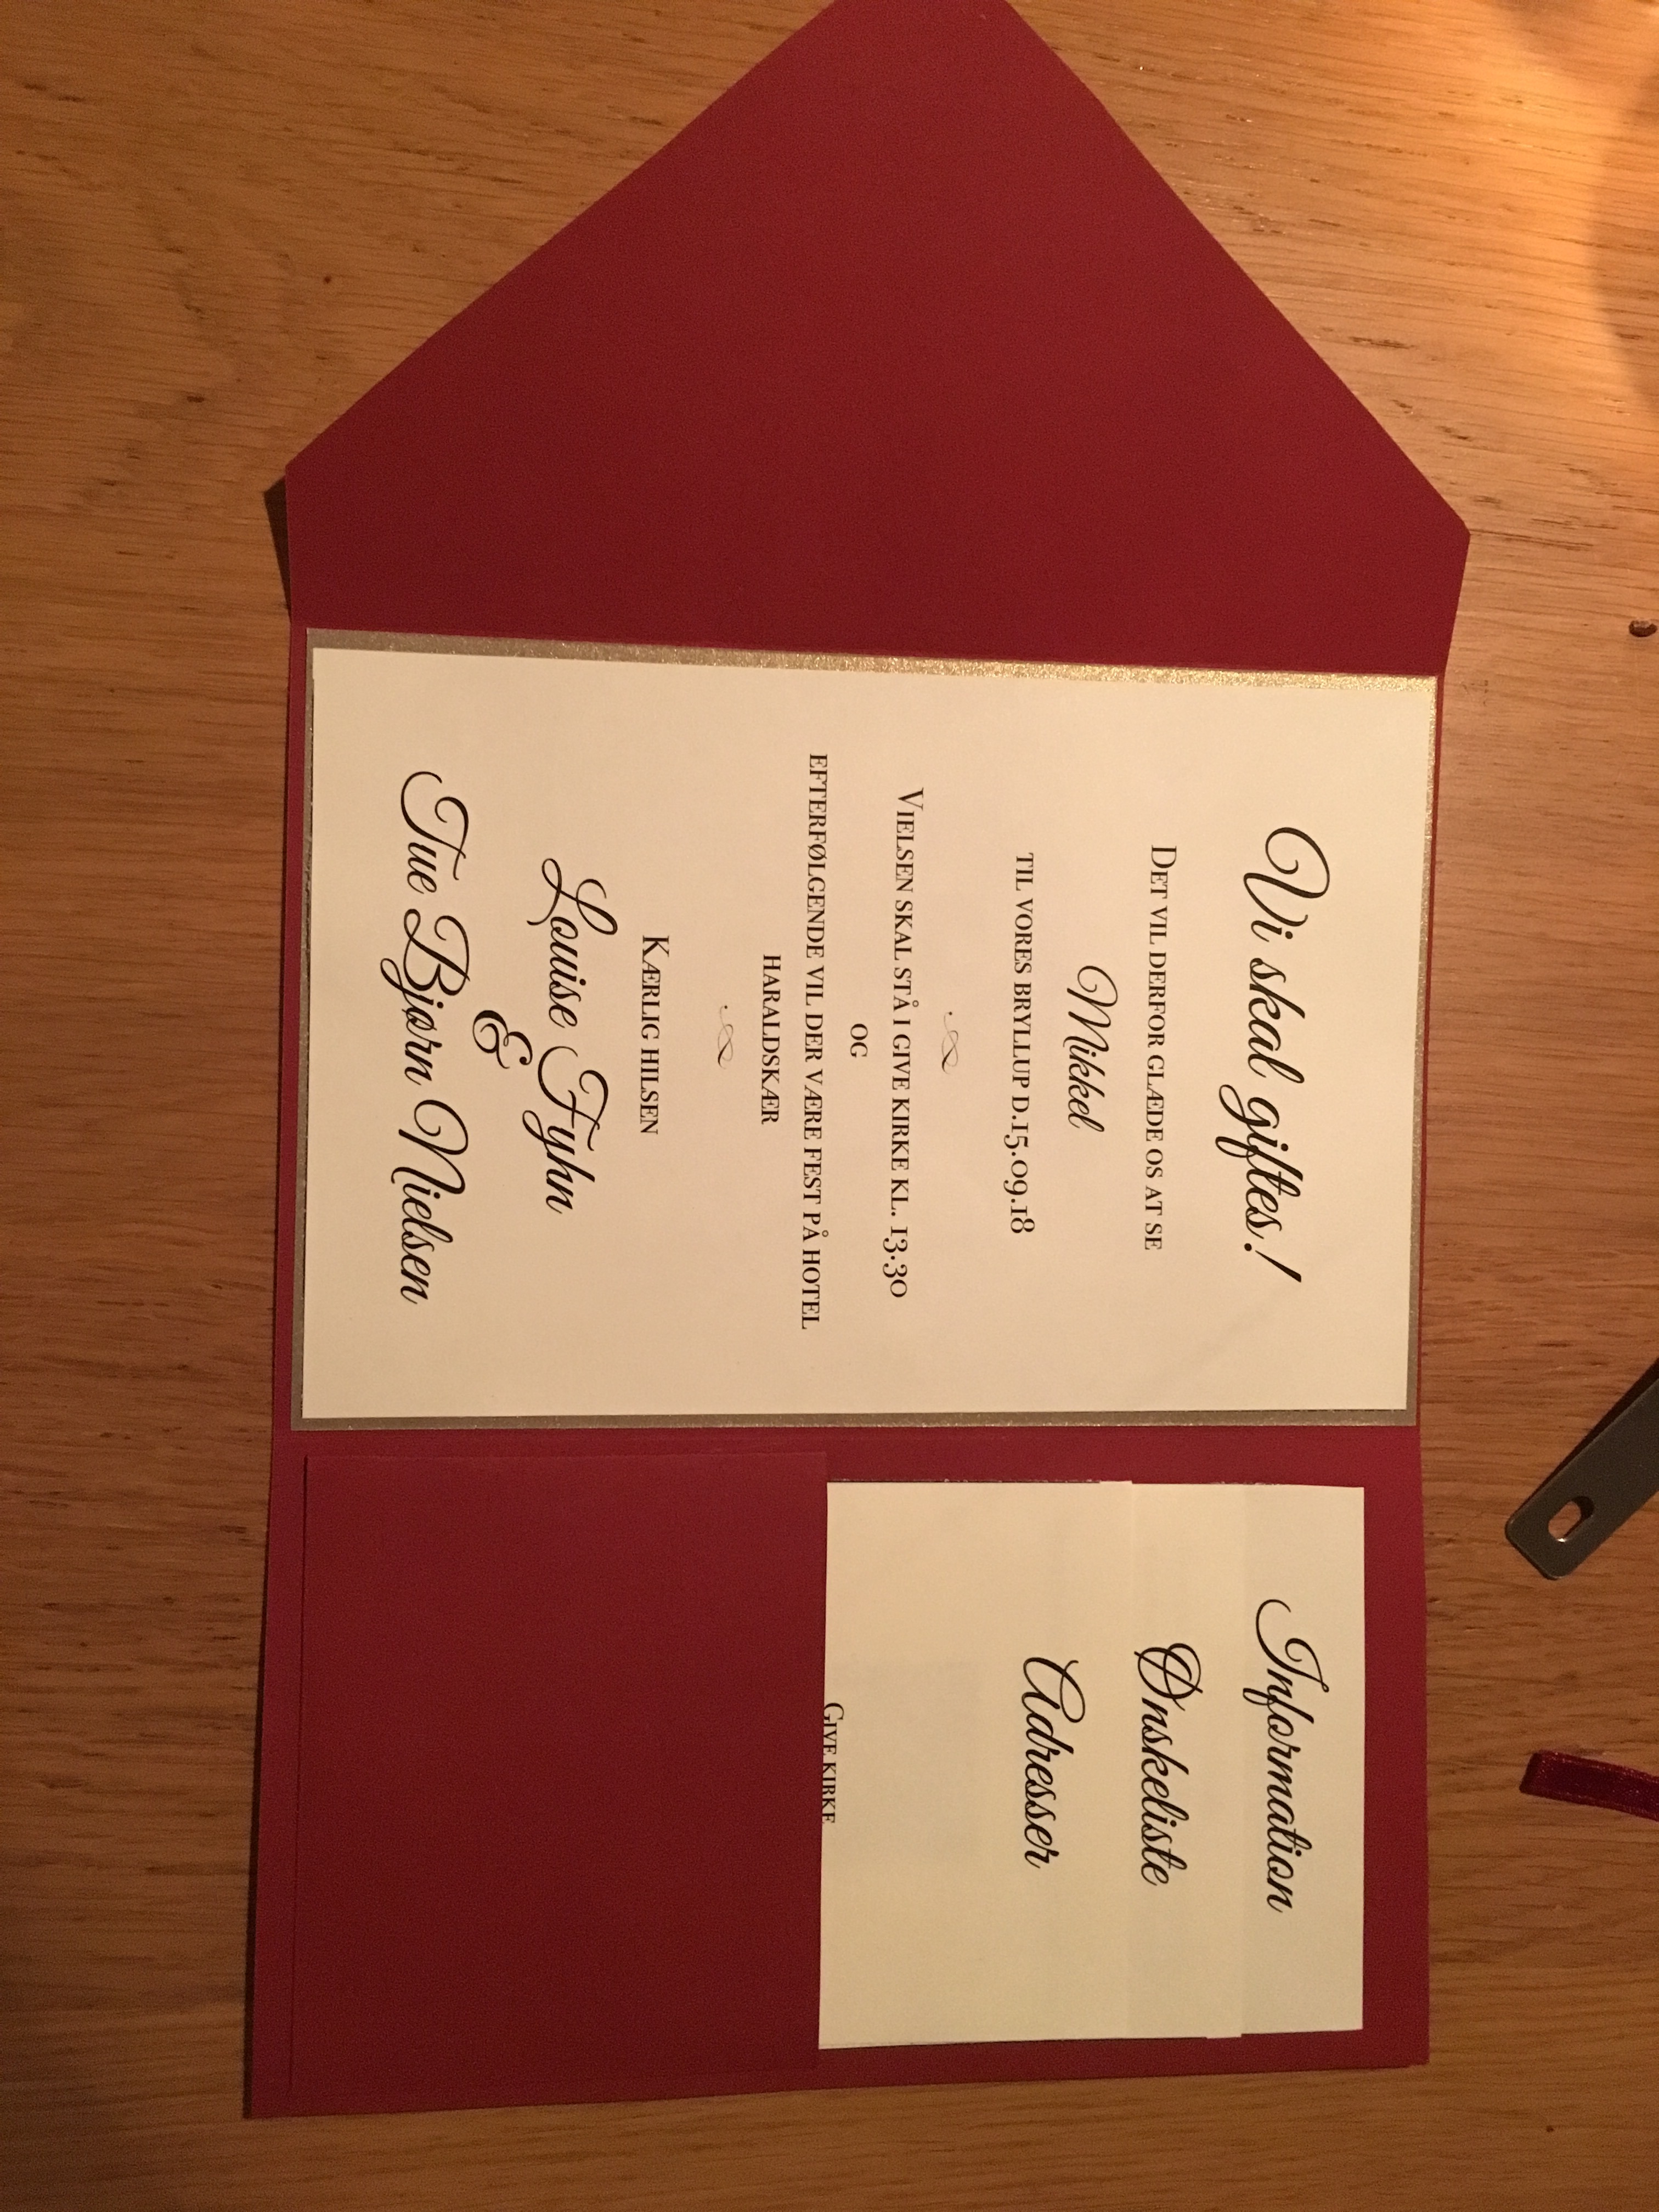 Vi skal giftes!
Det vil derfor glæde os at se
Mikkel
til vores bryllup d.15.09.18
Vielsen skal stå i Give Kirke kl. 13.30
og
efterfølgende vil der være fest på hotel
Haraldskær
Kærlig hilsen
Louise Fyhn
&
Tue Bjørn Nielsen
Information
Ønskeliste
Adresser
Give Kirke